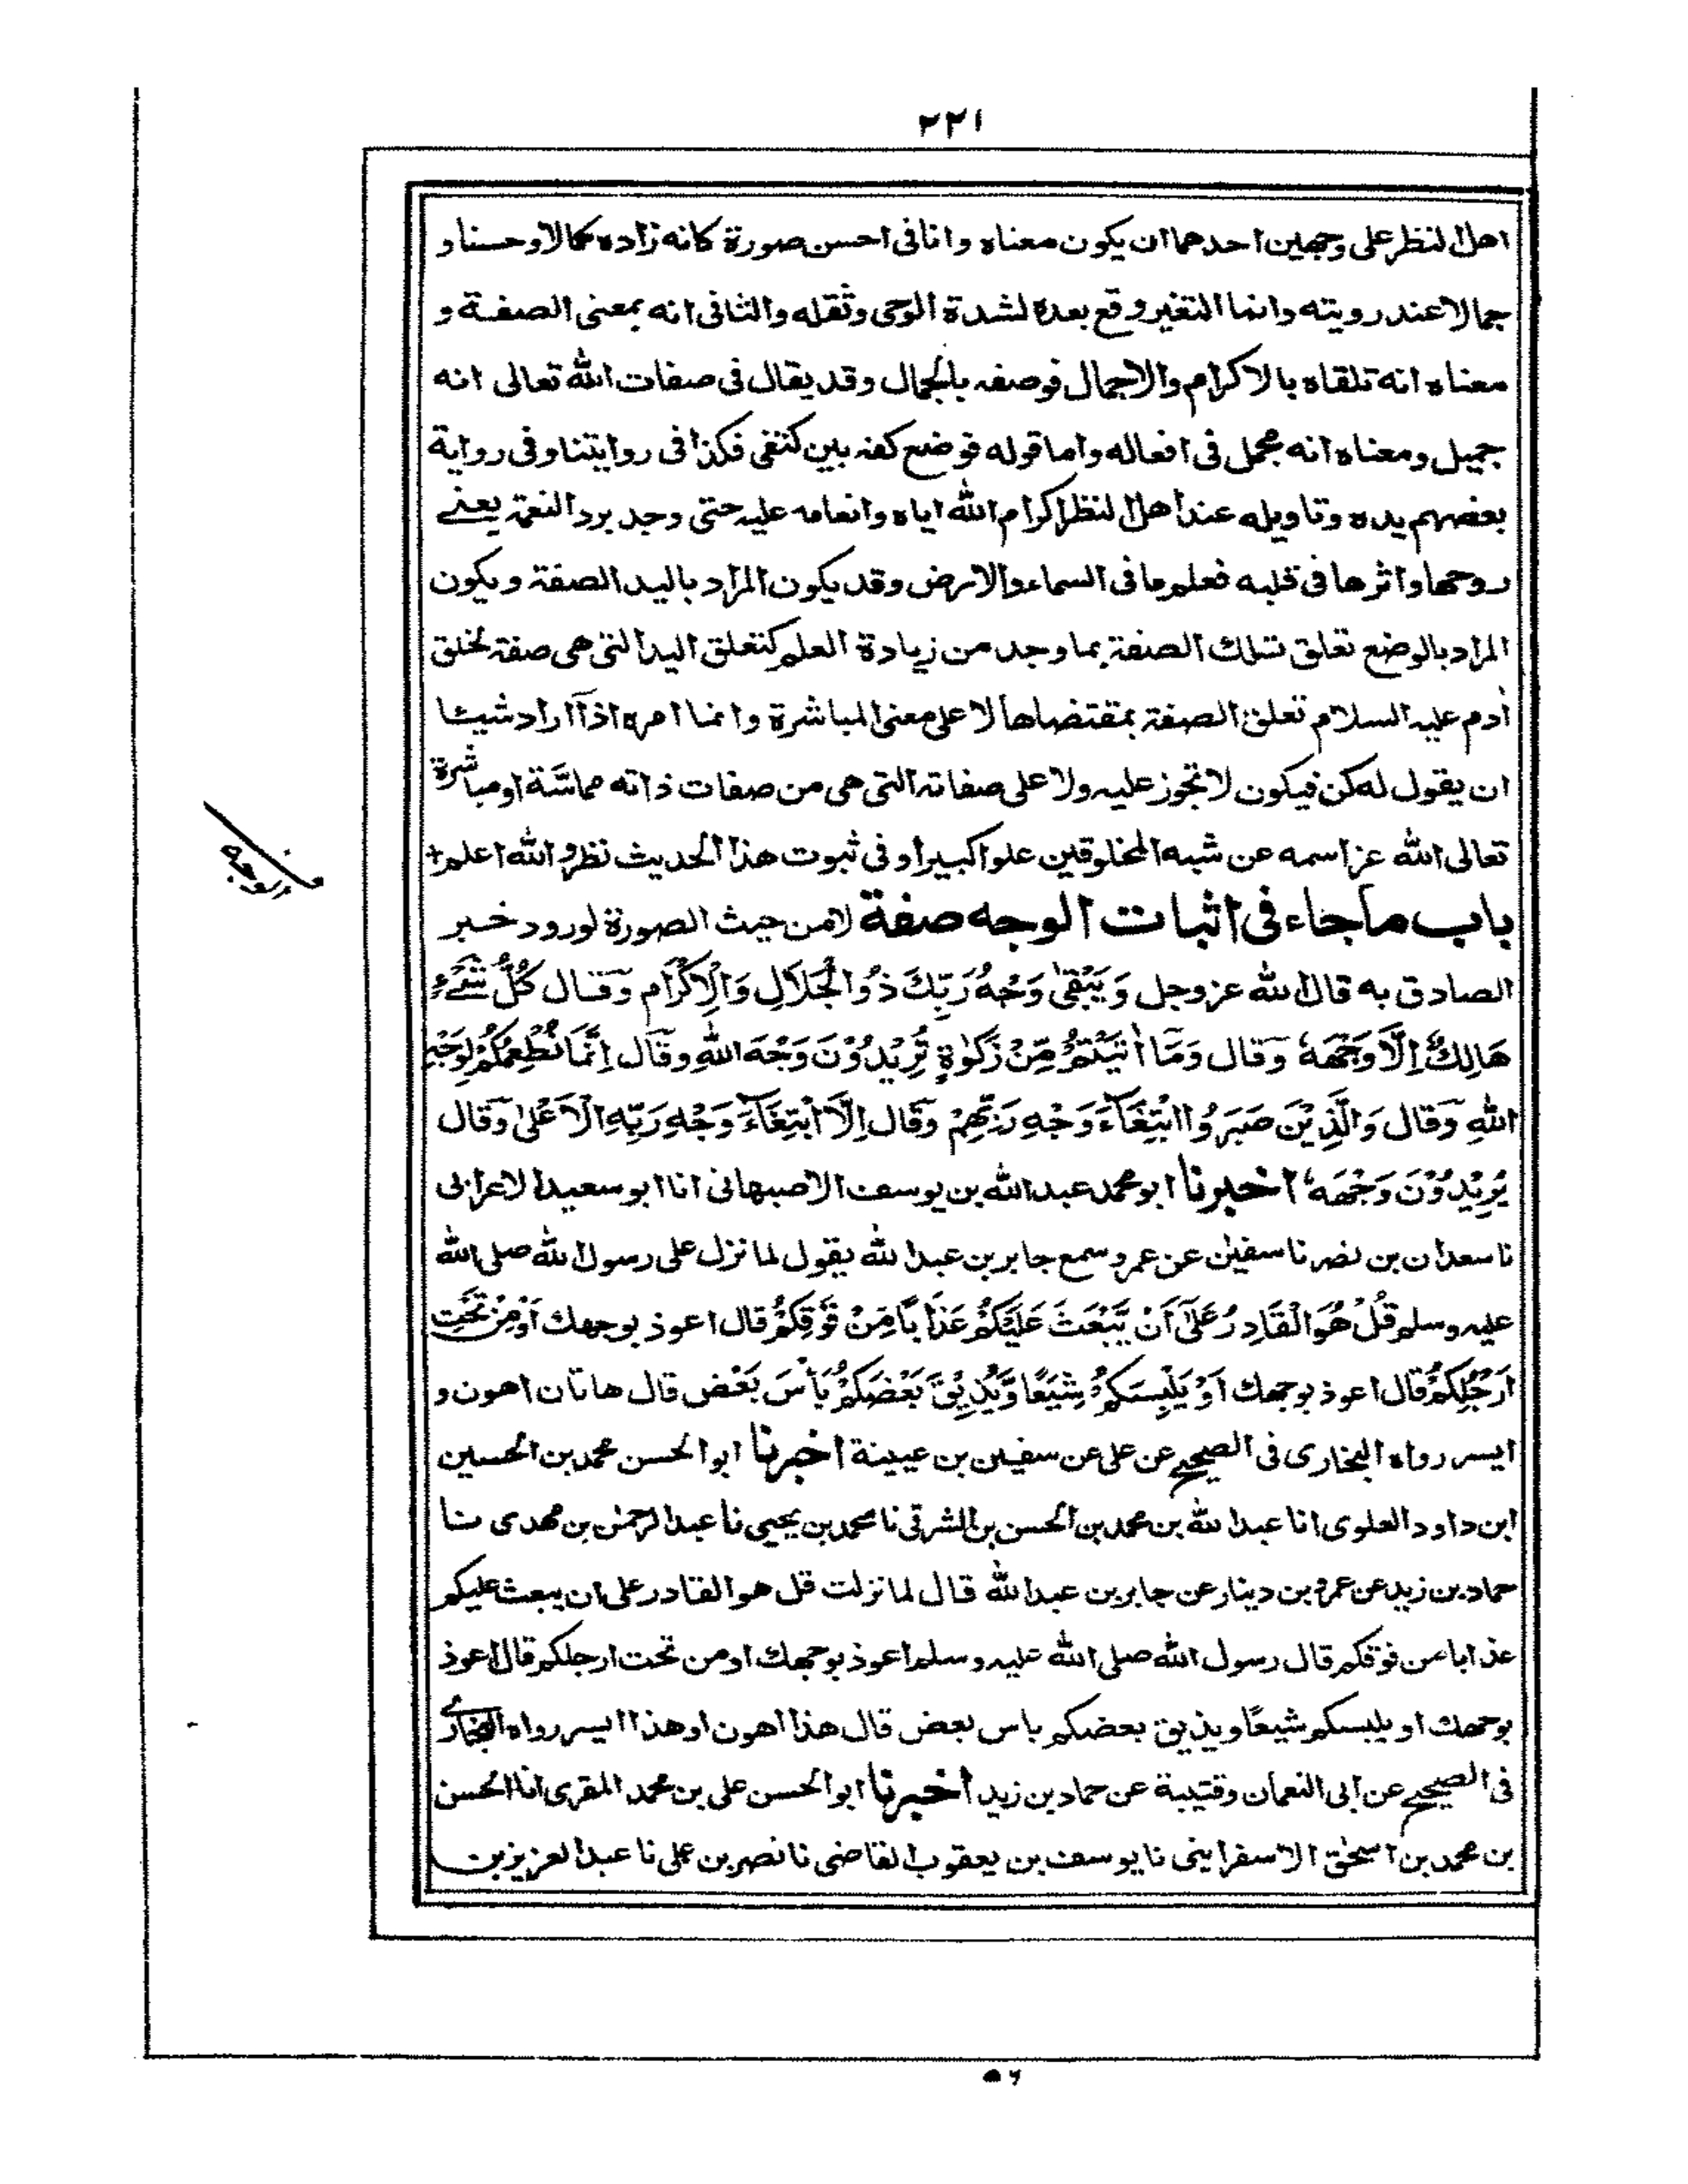 ٢٢١
اهل النظر على وجهين احدهما ان يكون معناه وانا فى احسن صورة كانه زاده كمالا وحسنا و
جمالا عند رويته وانما التغير وقع بعده لشدة الوحى وثقله والثانى انه بمعنى الصفة و
معناه انه تلقاه بالاكرام والاجمال فوصفه بالجمال وقد يقال فى صفات الله تعالى انه
جميل ومعناه انه مجمل فى افعاله واما قوله فوضع كفه بين كتفى فكذا فى روايتنا وفى رواية
بعضهم يده وتاويله عند اهل النظر اكرام الله اياه وانعامه عليه حتى وجد برد النعمة يعنے
روحها واثرها فى قلبه فعلم ما فى السماء والارض وقد يكون المراد باليد الصفة ويكون
المراد بالوضع تعلق تلك الصفة بما وجد من زيادة العلم كتعلق اليد التى هى صفة لخلق
اٰدم عليه السلام تعلق الصفة بمقتضاها لا على معنى المباشرة وانما امره اذآ اراد شيئا
ان يقول له كن فيكون لا تجوز عليه ولا على صفاته التى هى من صفات ذاته مماسّة او مباشرة
تعالى الله عز اسمه عن شبه المخلوقين علوا كبيرا وفى ثبوت هذا الحديث نظر والله اعلم +
باب ما جاء فى اثبات الوجه صفة لا من حيث الصورة لورود خبر
الصادق به قال الله عز وجل وَيَبْقٰى وَجْهُ رَبِّكَ ذُو الْجَلَالِ وَالْاِكْرَامِ وقال كُلُّ شَیْءٍ
هَالِكٌ اِلَّا وَجْهَهٗ وقال وَمَا اٰتَيْتُمْ مِّنْ زَكٰوةٍ تُرِيْدُوْنَ وَجْهَ اللهِ وقال اِنَّمَا نُطْعِمُكُمْ لِوَجْهِ
اللهِ وقال وَالَّذِيْنَ صَبَرُوا ابْتِغَآءَ وَجْهِ رَبِّهِمْ وقال اِلَّا ابْتِغَآءَ وَجْهِ رَبِّهِ الْاَعْلٰى وقال
يُرِيْدُوْنَ وَجْهَهٗ اخبرنا ابو محمد عبد الله بن يوسف الاصبهانى انا ابو سعيد الاعرابى
نا سعدان بن نصر نا سفيٰن عن عمرو سمع جابر بن عبد الله يقول لما نزل على رسول الله صلى الله
عليه وسلم قُلْ هُوَ الْقَادِرُ عَلٰٓى اَنْ يَّبْعَثَ عَلَيْكُمْ عَذَابًا مِّنْ فَوْقِكُمْ قال اعوذ بوجهك اَوْ مِنْ تَحْتِ
اَرْجُلِكُمْ قال اعوذ بوجهك اَوْ يَلْبِسَكُمْ شِيَعًا وَّيُذِيْقَ بَعْضَكُمْ بَاْسَ بَعْضٍ قال هاتان اهون و
ايسر رواه البخارى فى الصحيح عن على عن سفيٰن بن عيينة اخبرنا ابو الحسن محمد بن الحسين
ابن داود العلوى انا عبد الله بن محمد بن الحسن بن الشرقى نا محمد بن يحيى نا عبد الرحمٰن بن مهدى نا
حماد بن زيد عن عمرو بن دينار عن جابر بن عبد الله قال لما نزلت قل هو القادر على ان يبعث عليكم
عذابا من فوقكم قال رسول الله صلى الله عليه وسلم اعوذ بوجهك او من تحت ارجلكم قال اعوذ
بوجهك او يلبسكم شيعًا ويذيق بعضكم باس بعض قال هذا اهون او هذا ايسر رواه البخارى
فى الصحيح عن ابى النعمان وقتيبة عن حماد بن زيد اخبرنا ابو الحسن على بن محمد المقرى انا الحسن
بن محمد بن اسحٰق الاسفراينى نا يوسف بن يعقوب القاضى نا نصر بن على نا عبد العزيز بن